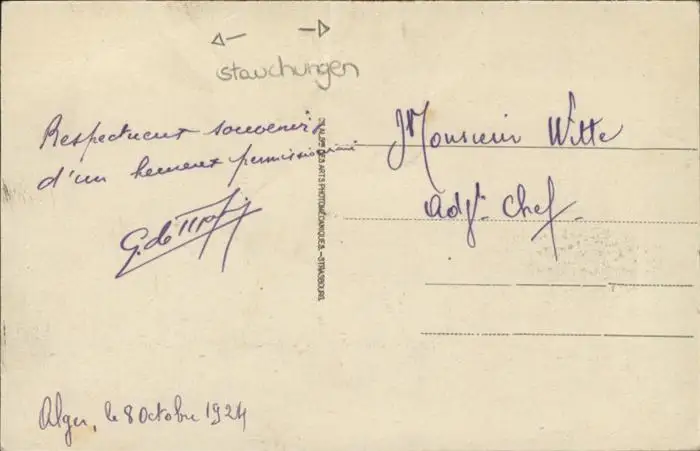 stauchungen
Respectueux souvenirs
d'un heureux permissionnaire
Monsieur Witte
Adjt. Chef
ALSACIENNE DES ARTS PHOTOMÉCANIQUES.—STRASBOURG
Alger, le 8 Octobre 1924